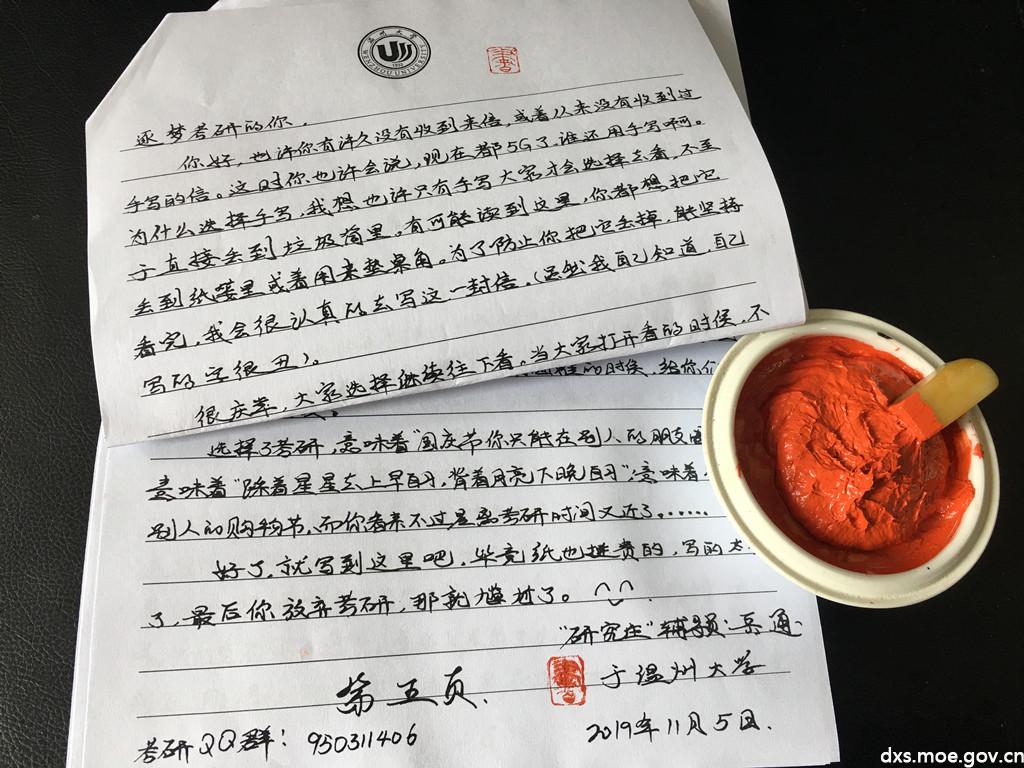 温州大学
WENZHOU UNIVERSITY
逐梦考研的你，
你好，也许你有许久没有收到来信，或着从来没有收到过
手写的信。这时你也许会说，现在都5G了，谁还用手写啊。
为什么选择手写，我想也许只有手写大家才会选择去看，不至
于直接丢到垃圾筒里。有可能读到这里，你都想把它
丢到纸篓里或着用来垫桌角。为了防止你把它丢掉，能坚持
看完，我会很认真的去写这一封信。（虽然我自己知道，自己
写的字很丑）。
很庆幸，大家选择继续往下看。当大家打开看的时候，不
的时候，给你们
选择了考研，意味着“国庆节你只能在别人的朋友圈
意味着“踩着星星去上早自习，背着月亮下晚自习”，意味着
别人的购物节，而你看来不过是离考研时间又近了……
好了，就写到这里吧，毕竟纸也挺贵的，写的太
了，最后你放弃考研，那就尴尬了。
“研究庄”辅导员：岳通
于温州大学
第五页.
考研QQ群：950311406
2019年11月5日.
dxs.moe.gov.cn